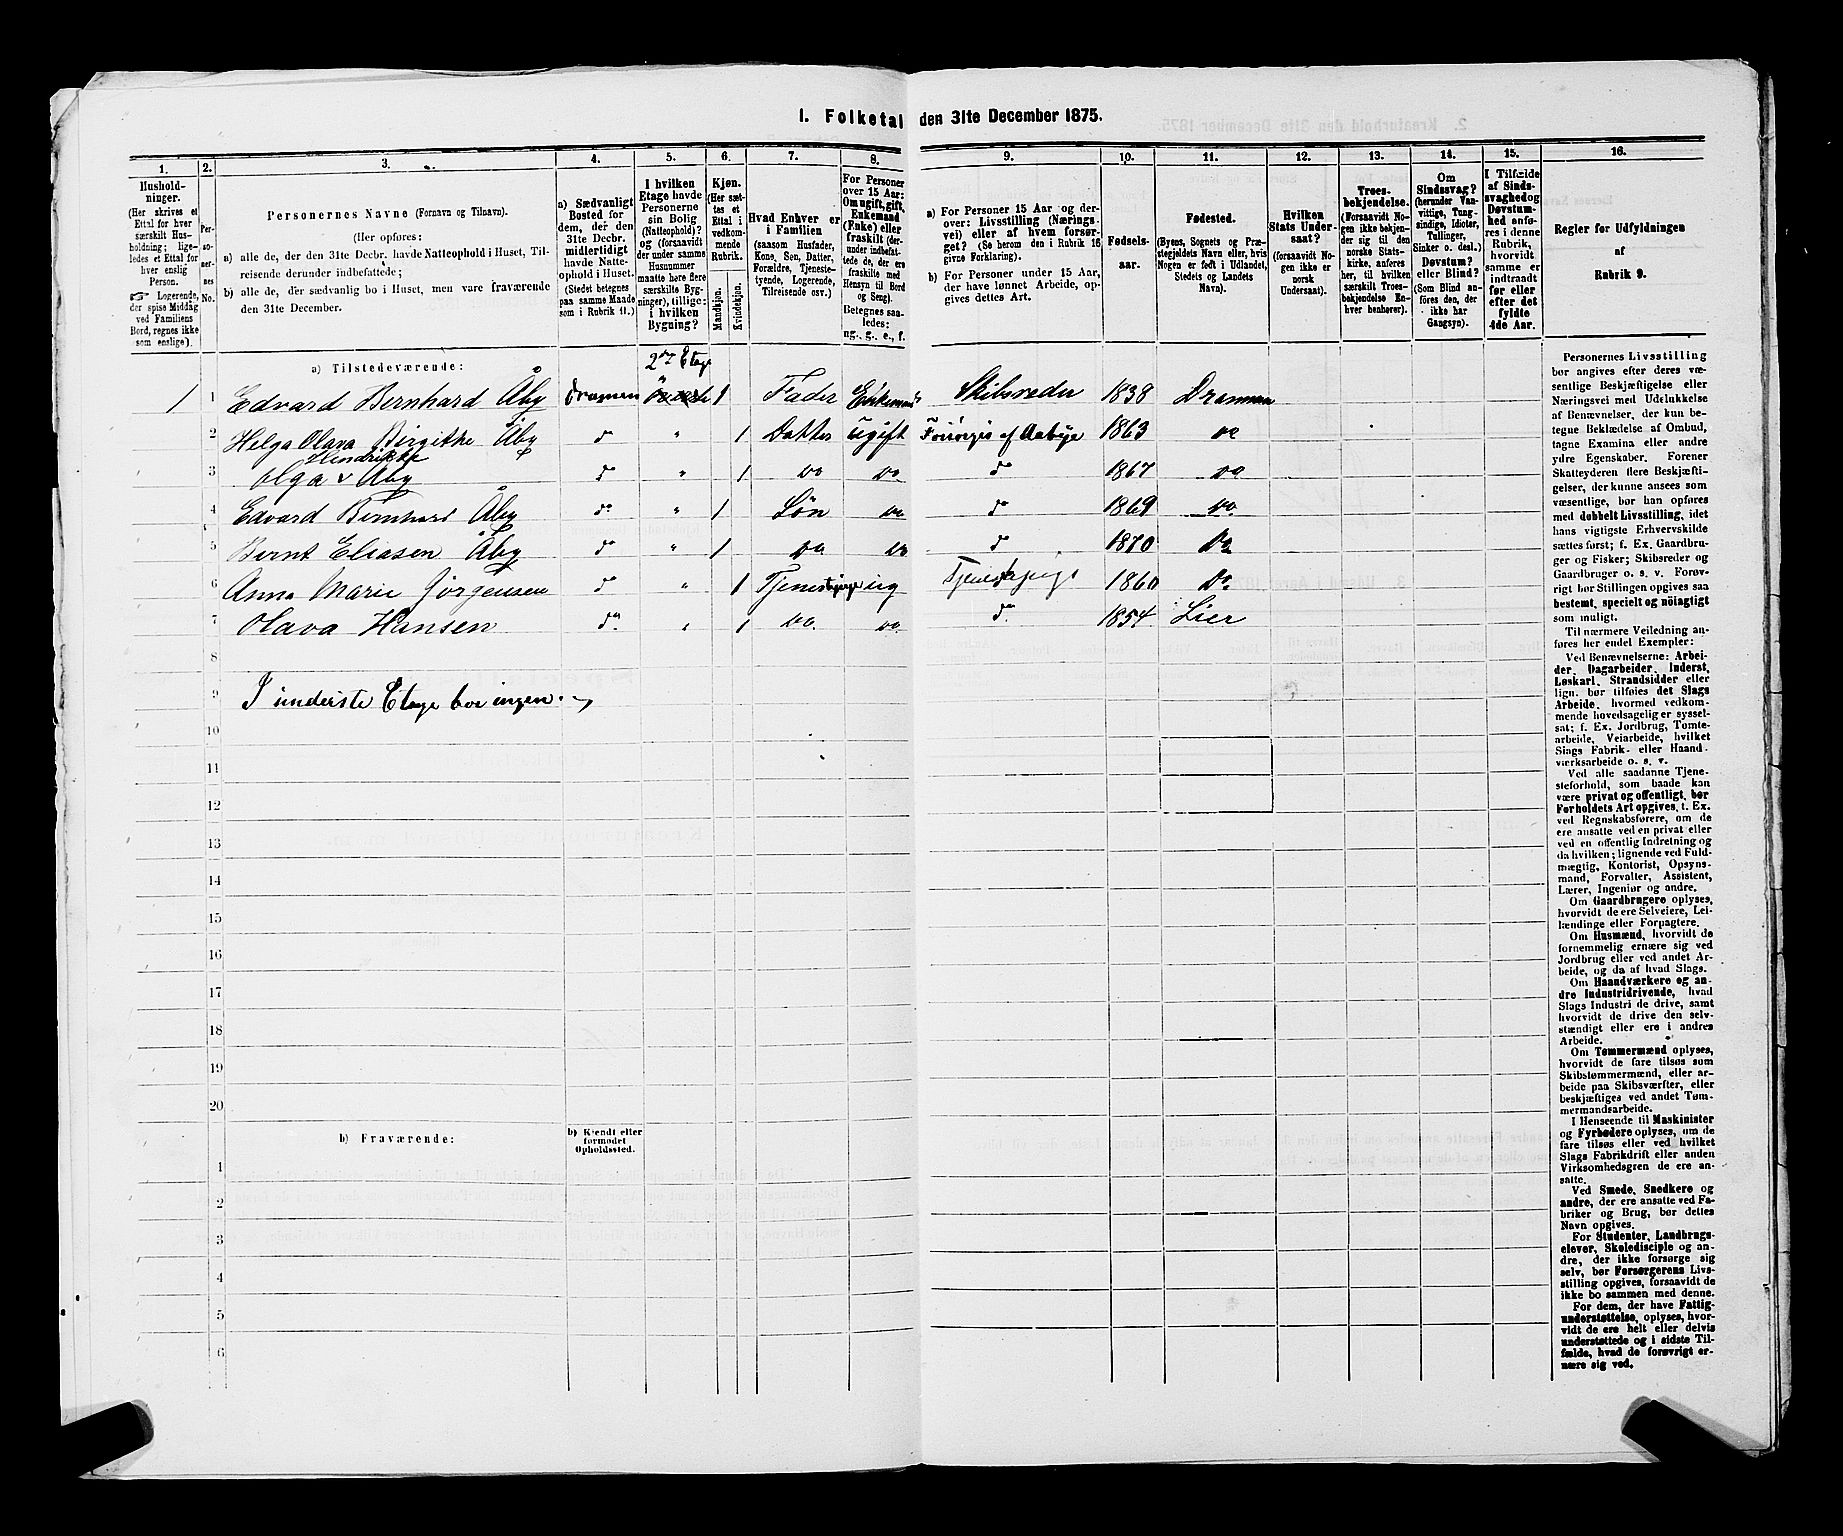 1. Folketal den 31te December 1875.
1. 2. 3. 4. 5. 6. 7. 8. 9. 10. 11. 12. 13. 14. 15. 16.
Hushold-
ninger.
(Her skrives et
Ettal for hver
særskilt Hus-
holdning; lige-
ledes et Ettal for
hver enslig
Person.
☞ Logerende,
der spise Middag
ved Familiens
Bord, regnes ikke
som enslige).
Per-
so-
ner-
nes
No.
Personernes Navne (Fornavn og Tilnavn).
(Her opføres:
a) alle de, der den 31te Decbr. havde Natteophold i Huset, Til-
reisende derunder indbefattede;
b) alle de, der sædvanlig bo i Huset, men vare fraværende
den 31te December.
a) Sædvanligt
Bosted for
dem, der den
31te Decbr.
midlertidigt
havde Natte-
ophold i Huset.
(Stedet betegnes
paa samme Maade
som i Rubrik 11.)
I hvilken
Etage havde
Personerne
sin Bolig
(Natteophold)?
og (forsaavidt
der under samme
Husnummer
maatte høre flere
særskilte Byg-
ninger), tillige:
i hvilken
Bygning?
Kjøn.
(Her sæt-
tes et
Ettal i
vedkom-
mende
Rubrik.
Mandkjøn.
Kvindekjøn.
Hvad Enhver er
i Familien
(saasom Husfader,
Kone, Søn, Datter,
Forældre, Tjeneste-
tyende, Logerende,
Tilreisende osv.)
For Personer
over 15 Aar:
Om ugift, gift,
Enkemand
(Enke) eller
fraskilt (der-
under indbefat-
tede de, der ere
fraskilte med
Hensyn til Bord
og Seng).
Betegnes saa-
ledes:
ug., g., e., f.
a) For Personer 15 Aar og der-
over: Livsstilling (Nærings-
vei) eller af hvem forsør-
get? (Se herom den i Rubrik 16
givne Forklaring).
b) For Personer under 15 Aar,
der have lønnet Arbeide, op-
gives dettes Art.
Fødsels-
aar.
Fødested.
(Byens, Sognets og Præ-
stegjeldets Navn eller, hvis
Nogen er født i Udlandet,
Stedets og Landets
Navn).
Hvilken
Stats Under-
saat?
(forsaavidt No-
gen ikke er
norsk
Undersaat).
Troes-
bekjendelse.
(Forsaavidt No-
gen ikke bekjen-
der sig til den
norske Stats-
kirke, anføres
her, til hvilken
særskilt Troes-
bekjendelse En-
hver henhører).
Om
Sindssvag?
(herunder Van-
vittige, Tung-
sindige, Idioter,
Tullinger,
Sinker o. desl.)
Døvstum?
eller Blind?
(Som Blind an-
føres den, der
ikke har
Gangsyn).
I Tilfælde
af Sinds-
svaghed og
Døvstum-
hed anfø-
res i denne
Rubrik,
hvorvidt
samme er
indtraadt
før eller
efter det
fyldte
4de Aar.
Regler for Udfyldningen
af
Rubrik 9.
a) Tilstedeværende: 2den Etage
1 1 Edvard Bernhard Åby Dramen 1 Fader Enkemand Skibsreder 1838 Drammen
2 Helga Olava Birgitte Åby do " 1 Datter ugift Forsørges af Aabye 1863 do
Hendrikke
3 Olga v Aby do " 1 do do do 1867 do
4 Edvard Bernhard Åby do " 1 Søn do do 1869 do
5 Bernt Eliasen Åby do " 1 do do do 1870 do
6 Anna Marie Jörgensen do " 1 Tjenestepige ug Tjenestepige 1860 do
7 Olava Hansen do " 1 do do do 1854 Lier
8
9 I underste Etage bor ingen.
10
11
12
13
14
15
16
17
18
19
20
b) Fraværende:
b) Kjendt eller
formodet
Opholdssted.
1
2
3
4
5
6
Personernes Livsstilling
bør angives efter deres væ-
sentlige Beskjæftigelse eller
Næringsvei med Udelukkelse
af Benævnelser, der kun be-
tegne Beklædelse af Ombud,
tagne Examina eller andre
ydre Egenskaber. Forener
Skatteyderen flere Beskjæfti-
gelser, der kunne ansees som
væsentlige, bør han opføres
med dobbelt Livsstilling, idet
hans vigtigste Erhvervskilde
sættes først; f. Ex. Gaardbru-
ger og Fisker; Skibsreder og
Gaardbruger o. s. v. Forøv-
rigt bør Stillingen opgives saa
bestemt, specielt og nöiagtigt
som muligt.
Til nærmere Veiledning an-
føres her endel Exempler:
Ved Benævnelserne: Arbei-
der, Dagarbeider, Inderst,
Løskarl, Strandsidder eller
lign. bør tilføies det Slags
Arbeide, hvormed vedkom-
mende hovedsagelig er syssel-
sat; f. Ex. Jordbrug, Tomte-
arbeide, Veiarbeide, hvilket
Slags Fabrik- eller Haand-
værksarbeide o. s. v.
Ved alle saadanne Tjene-
steforhold, som baade kan
være privat og offentligt, bør
Forholdets Art opgives, t. Ex.
ved Regnskabsførere, om de
ere ansatte ved en privat eller
ved en offentlig Indretning og
da hvilken; lignende ved Fuld-
mægtig, Kontorist, Opsyns-
mand, Forvalter, Assistent,
Lærer, Ingeniør og andre.
Om Gaardbrugere oplyses,
hvorvidt de ere Selveiere, Lei-
lændinge eller Forpagtere.
Om Husmænd, hvorvidt de
fornemmelig ernære sig ved
Jordbrug eller ved andet Ar-
beide, og da af hvad Slags.
Om Haandværkere og an-
dre Industridrivende, hvad
Slags Industri de drive, samt
hvorvidt de drive den selv-
stændigt eller ere i andres
Arbeide.
Om Tømmermænd oplyses,
hvorvidt de fare tilsøs som
Skibstømmermænd, eller ar-
beide paa Skibsværfter, eller
beskjæftiges ved andet Tøm-
mermandsarbeide.
I Henseende til Maskinister
og Fyrbødere oplyses, om de
fare tilsøs eller ved hvilket
Slags Fabrikdrift eller anden
Virksomhedsgren de ere an-
satte.
Ved Smede, Snedkere og
andre, der ere ansatte ved Fa-
briker og Brug, bør dettes
Navn opgives.
For Studenter, Landbrugs-
elever, Skoledisciple og an-
dre, der ikke forsørge sig
selv, bør Forsørgerens Livs-
stilling opgives, forsaavidt de
ikke bo sammen med denne.
For dem, der have Fattig-
understøttelse, oplyses, hvor-
vidt de ere helt eller delvis
understøttede og i sidste Til-
fælde, hvad de forøvrigt er-
nære sig ved.